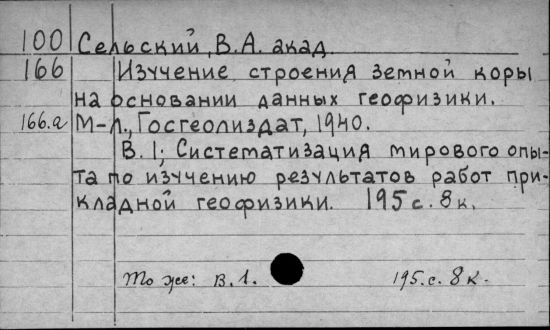 100 Сельский, В.А. акад.
166 Изучение строения земной коры
на основании данных геофизики.
166.а М-Л., Госгеолиздат, 1940.
В. 1; Систематизация мирового опы-
та по изучению результатов работ при-
кладной геофизики. 195 с. 8 к.
То же: В. 1. 195. с. 8 к.